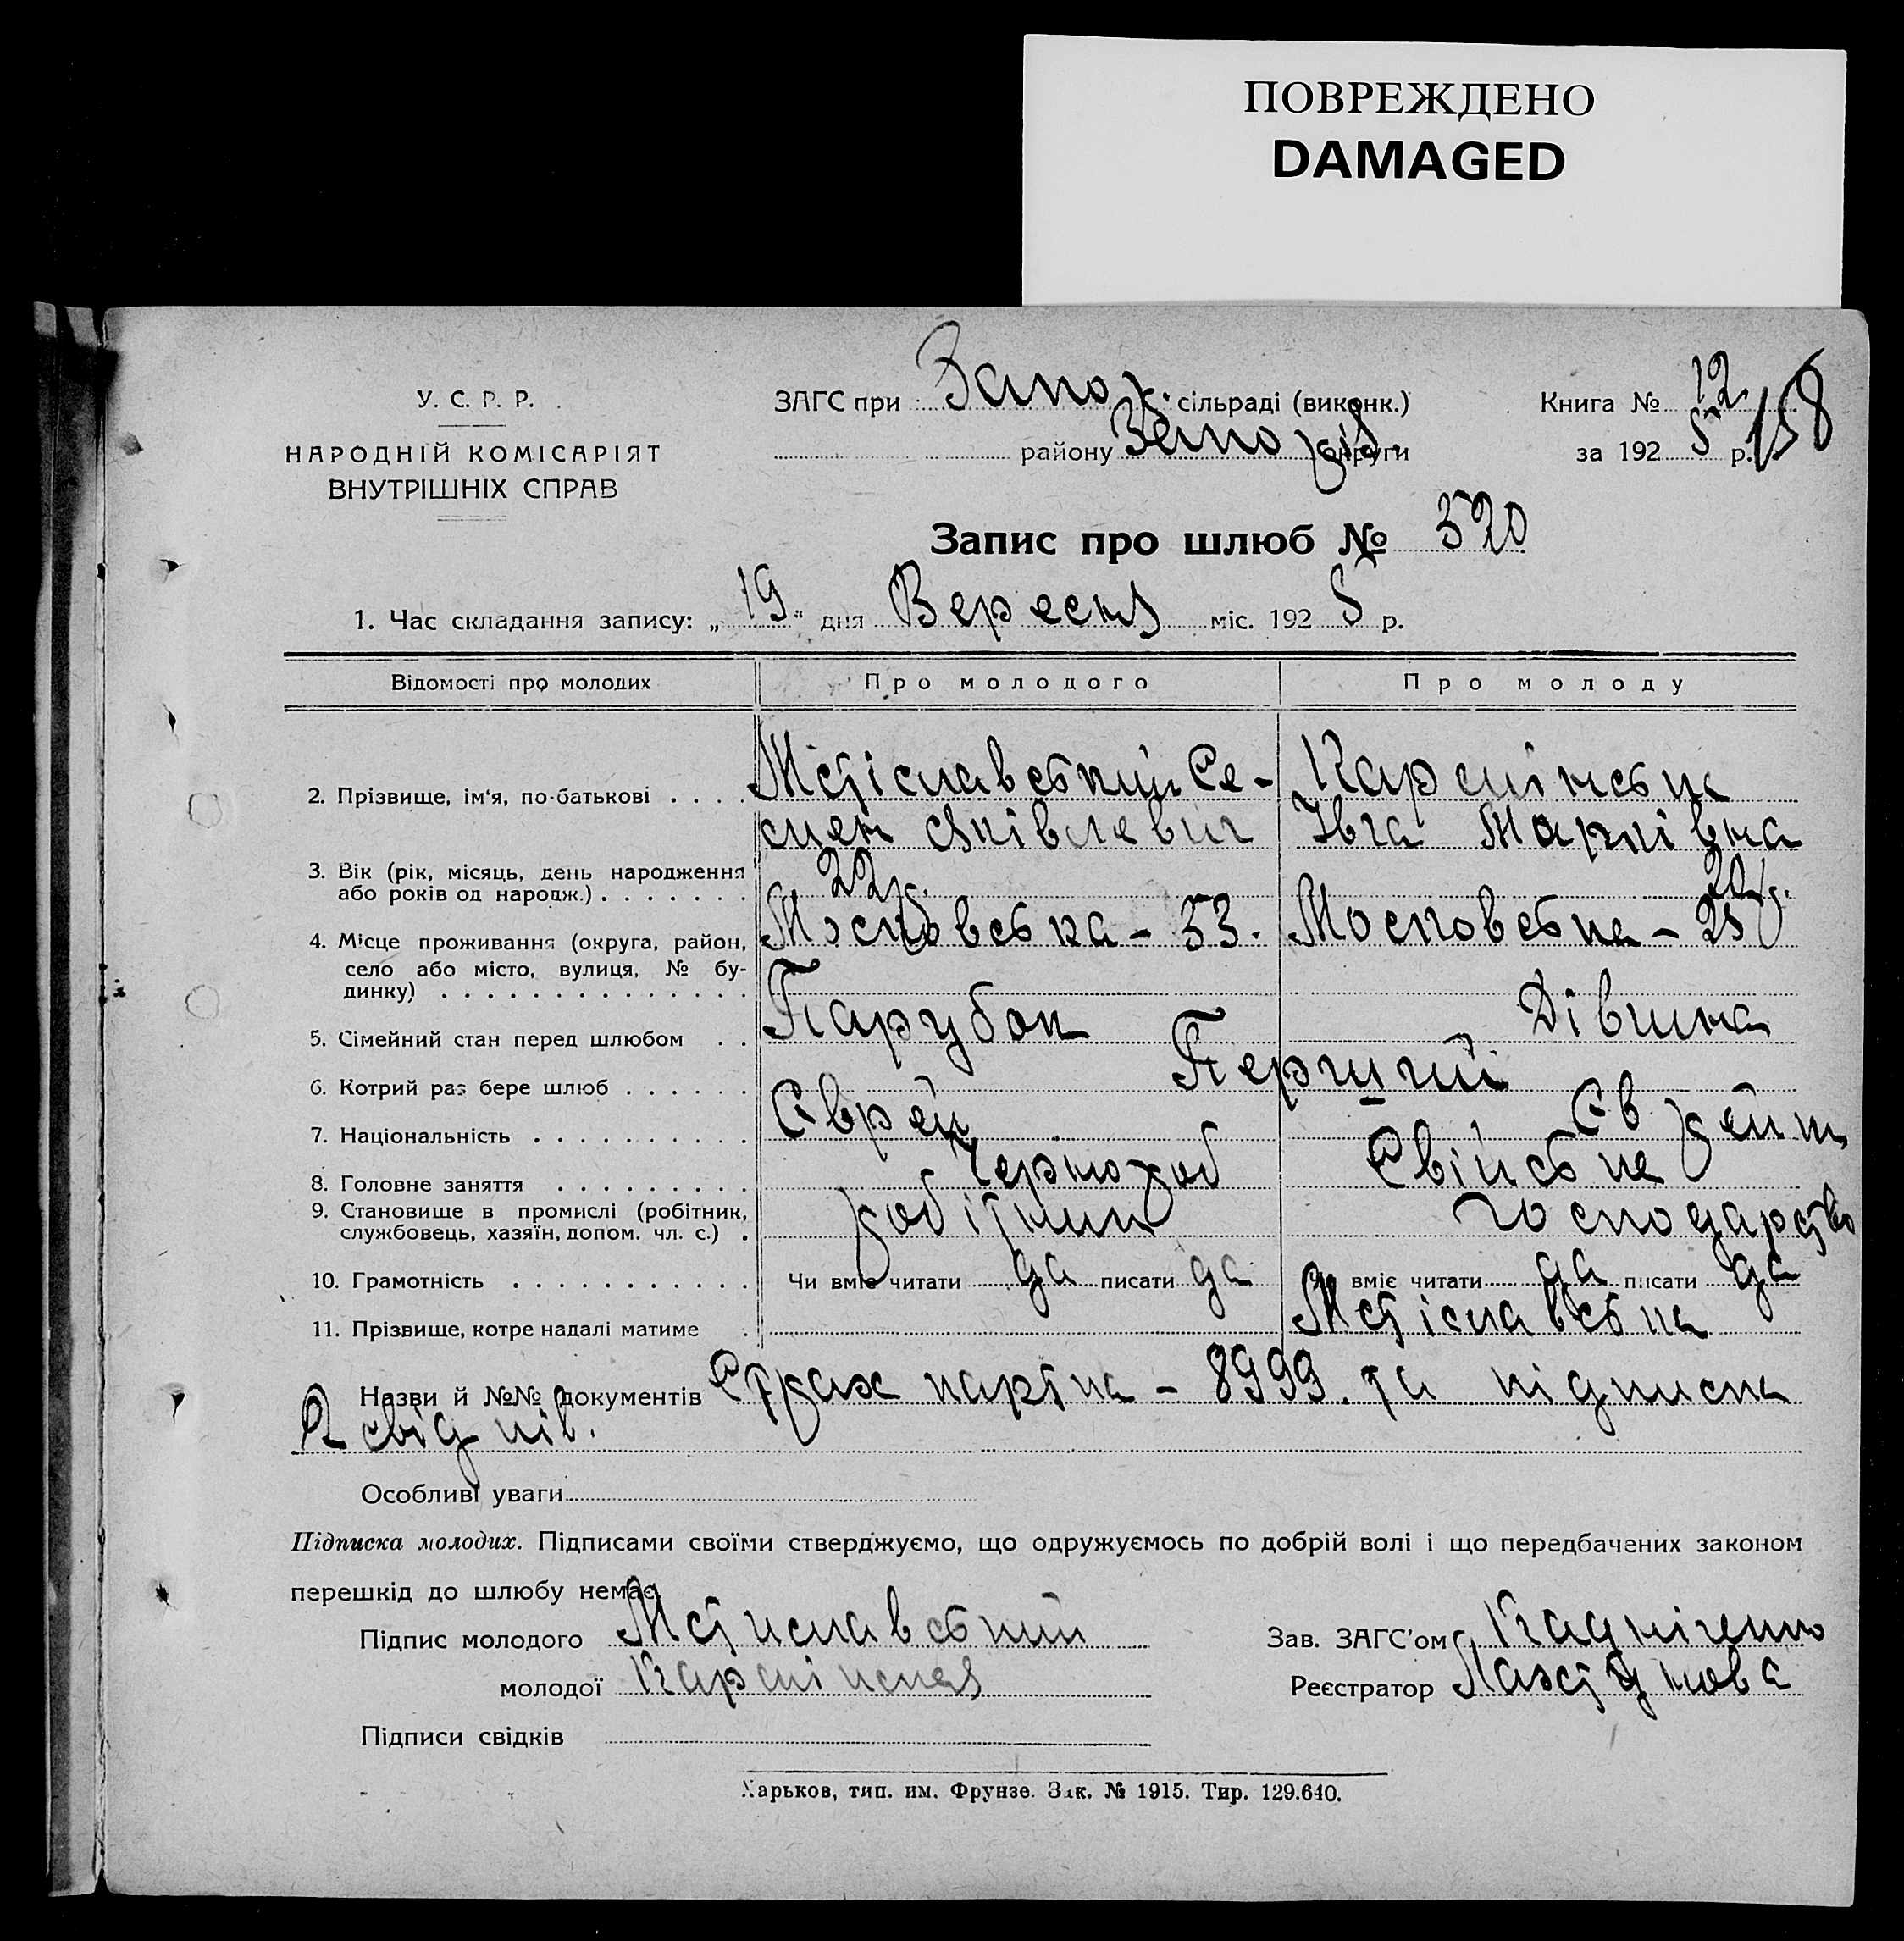 ПОВРЕЖДЕНО
DAMAGED
У. С. Р. Р.
НАРОДНІЙ КОМІСАРІЯТ
ВНУТРІШНІХ СПРАВ
ЗАГС при Запож. сільраді (виконк.)
району Запоріз. округи
Книга № 12
за 1925 р.
158
Запис про шлюб № 520
1. Час складання запису: „19" дня Вересня міс. 1925 р.
Відомості про молодих Про молодого Про молоду
2. Прізвище, ім'я, по-батькові . . . . Мстіславський Се- Карпінська
мен Яківлевич Івга Марківна
3. Вік (рік, місяць, день народження
або років од народж.) . . . . . . . 22р. 20р.
4. Місце проживання (округа, район, Московська – 33. Московська – 25
село або місто, вулиця, № бу-
динку) . . . . . . . . . . . . . .
5. Сімейний стан перед шлюбом . . Парубок Дівчина
6. Котрий раз бере шлюб . . . . . . Перший
7. Національність . . . . . . . . . . Єврей Єврейка
8. Головне заняття . . . . . . . . . Чорнороб Свійське
9. Становище в промислі (робітник, робітник господарство
службовець, хазяїн, допом. чл. с.) .
10. Грамотність . . . . . . . . . . . Чи вміє читати да писати да Чи вміє читати да писати да
11. Прізвище, котре надалі матиме . Мстіславська
Назви й №№ документів Страх картка – 8999. та підписка
2 свідків.
Особливі уваги
Підписка молодих. Підписами своїми стверджуємо, що одружуємось по добрій волі і що передбачених законом
перешкід до шлюбу немає.
Підпис молодого Мстиславский Зав. ЗАГС'ом
молодої Карпінская Реєстратор
Підписи свідків
Харьков, тип. им. Фрунзе. Зак. № 1915. Тир. 129.640.